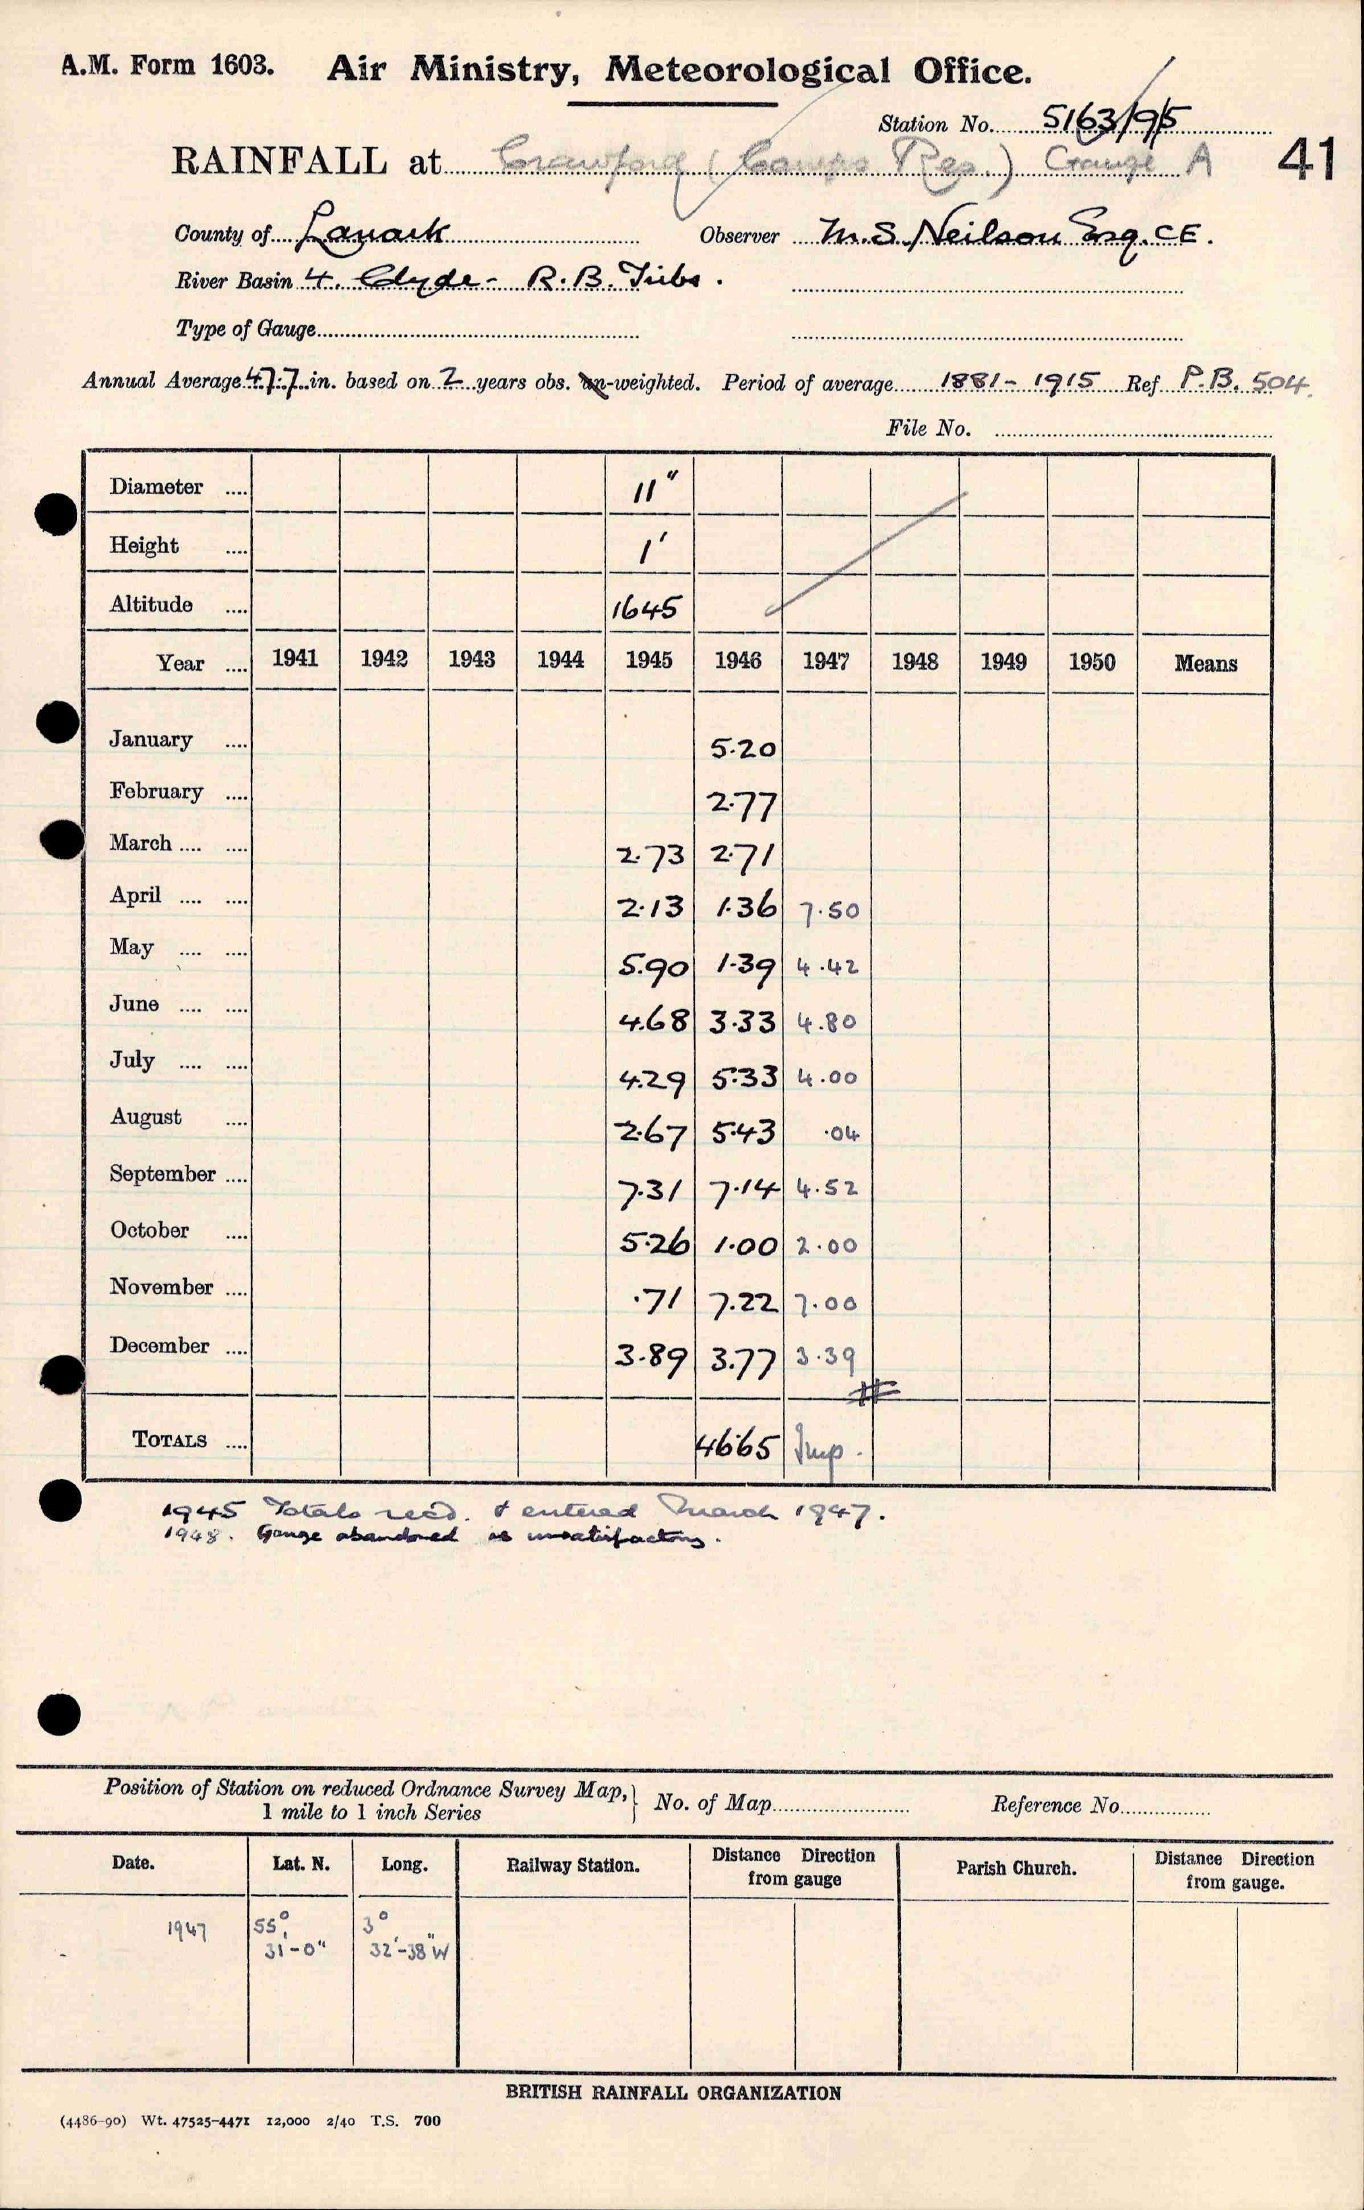 A.M. Form 1603. Air Ministry, Meteorological Office.
Station No. 5163/9/5
RAINFALL at Crawford (Camps Res.) Gauge A 41
County of Lanark Observer M.S. Neilson Esq. C.E.
River Basin 4. Clyde - R.B. Tribs.
Type of Gauge
Annual Average 47.7 in. based on 2 years obs. un-weighted. Period of average 1881 - 1915 Ref P.B. 504.
File No.
Diameter .... 11"
Height .... 1'
Altitude .... 1645
Year .... 1941 1942 1943 1944 1945 1946 1947 1948 1949 1950 Means
January .... 5.20
February .... 2.77
March .... .... 2.73 2.71
April .... .... 2.13 1.36 7.50
May .... .... 5.90 1.39 4.42
June .... .... 4.68 3.33 4.80
July .... .... 4.29 5.33 4.00
August .... 2.67 5.43 .04
September .... 7.31 7.14 4.52
October .... 5.26 1.00 2.00
November .... .71 7.22 7.00
December .... 3.89 3.77 3.39
TOTALS .... 46.65 Imp.
1945 Totals recd. & entered March 1947.
1948. Gauge abandoned as unsatisfactory.
Position of Station on reduced Ordnance Survey Map, } No. of Map Reference No.
1 mile to 1 inch Series
Date. Lat. N. Long. Railway Station. Distance Direction from gauge Parish Church. Distance Direction from gauge.
1947 55° 3°
31'-0" 32'-38" W
BRITISH RAINFALL ORGANIZATION
(4486-90) Wt. 47525-4471 12,000 2/40 T.S. 700